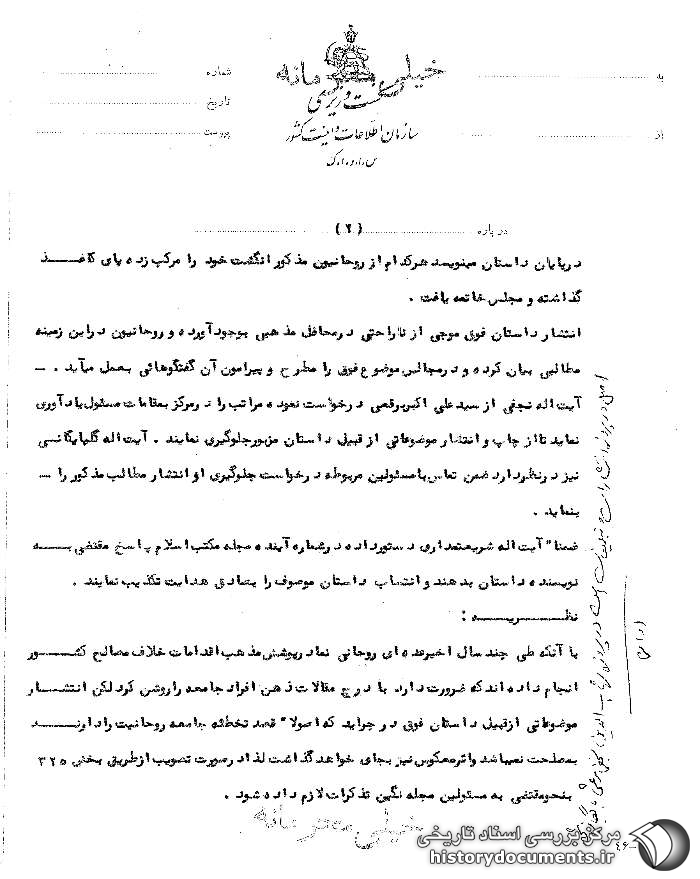 خیلی محرمانه
نخست وزیری
سازمان اطلاعات و امنیت کشور
س.ا.و.ا.ک
به
شماره
تاریخ
از
پیوست
درباره (۲)
درپایان داستان مینویسد هرکدام از روحانیون مذکور انگشت خود را مرکب زده پای کاغذ
گذاشته و مجلس خاتمه یافت .
انتشار داستان فوق موجی از ناراحتی در محافل مذهبی بوجود آورده و روحانیون در این زمینه
مطالبی بیان کرده و در مجالس موضوع فوق را مطرح و پیرامون آن گفتگوهائی بعمل میآید . ـــ
آیت اله نجفی از سید علی اکبر برقعی درخواست نموده مراتب را در مرکز بمقامات مسئول یادآوری
نماید تا از چاپ و انتشار موضوعاتی از قبیل داستان مزبور جلوگیری نمایند . آیت اله گلپایگانی
نیز در نظر دارد ضمن تماس با مسئولین مربوطه درخواست جلوگیری از انتشار مطالب مذکور را ـــ
بنماید .
ضمنا" آیت اله شریعتمداری دستور داده در شماره آینده مجله مکتب اسلام پاسخ مقتضی بـــه
نویسنده داستان بدهند و انتساب داستان موصوف را بصادق هدایت تکذیب نمایند .
نظـــریـــه :
با آنکه طی چند سال اخیر عده ای روحانی نما در پوشش مذهب اقدامات خلاف مصالح کشـــور
انجام داده اند که ضرورت دارد با درج مقالات ذهن افراد جامعه را روشن کرد لکن انتشـــار
موضوعاتی از قبیل داستان فوق در جراید که اصولا" قصد تخطئه جامعه روحانیت را دارنـــد
بمصلحت نمیباشد و اثر معکوس نیز بجای خواهد گذاشت لذا در صورت تصویب از طریق بخش ۳۲۵
بنحو مقتضی به مسئولین مجله نگین تذکرات لازم داده شود .
خیلی محرمانه
مرکز بررسی اسناد تاریخی
historydocuments.ir